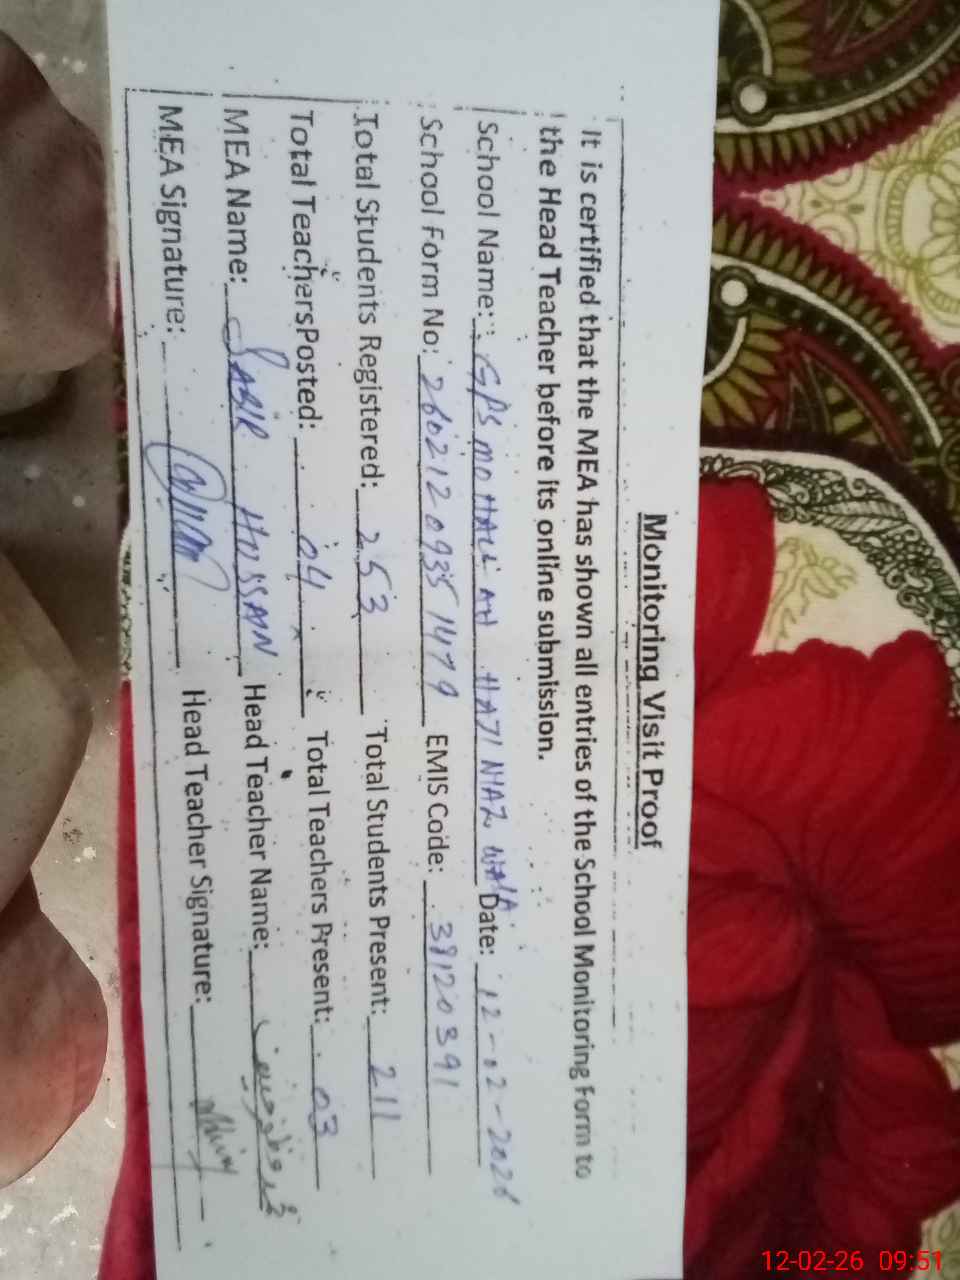 Monitoring Visit Proof
It is certified that the MEA has shown all entries of the School Monitoring Form to
the Head Teacher before its online submission.
School Name: GPS MOHALLAH HAJI NIAZ WALA Date: 12-02-2026
School Form No: 26021209351479 EMIS Code: 38120391
Total Students Registered: 253 Total Students Present: 211
Total Teachers Posted: 04 Total Teachers Present: 03
MEA Name: SABIR HUSSAIN Head Teacher Name:
MEA Signature: Head Teacher Signature:
12-02-26 09:51